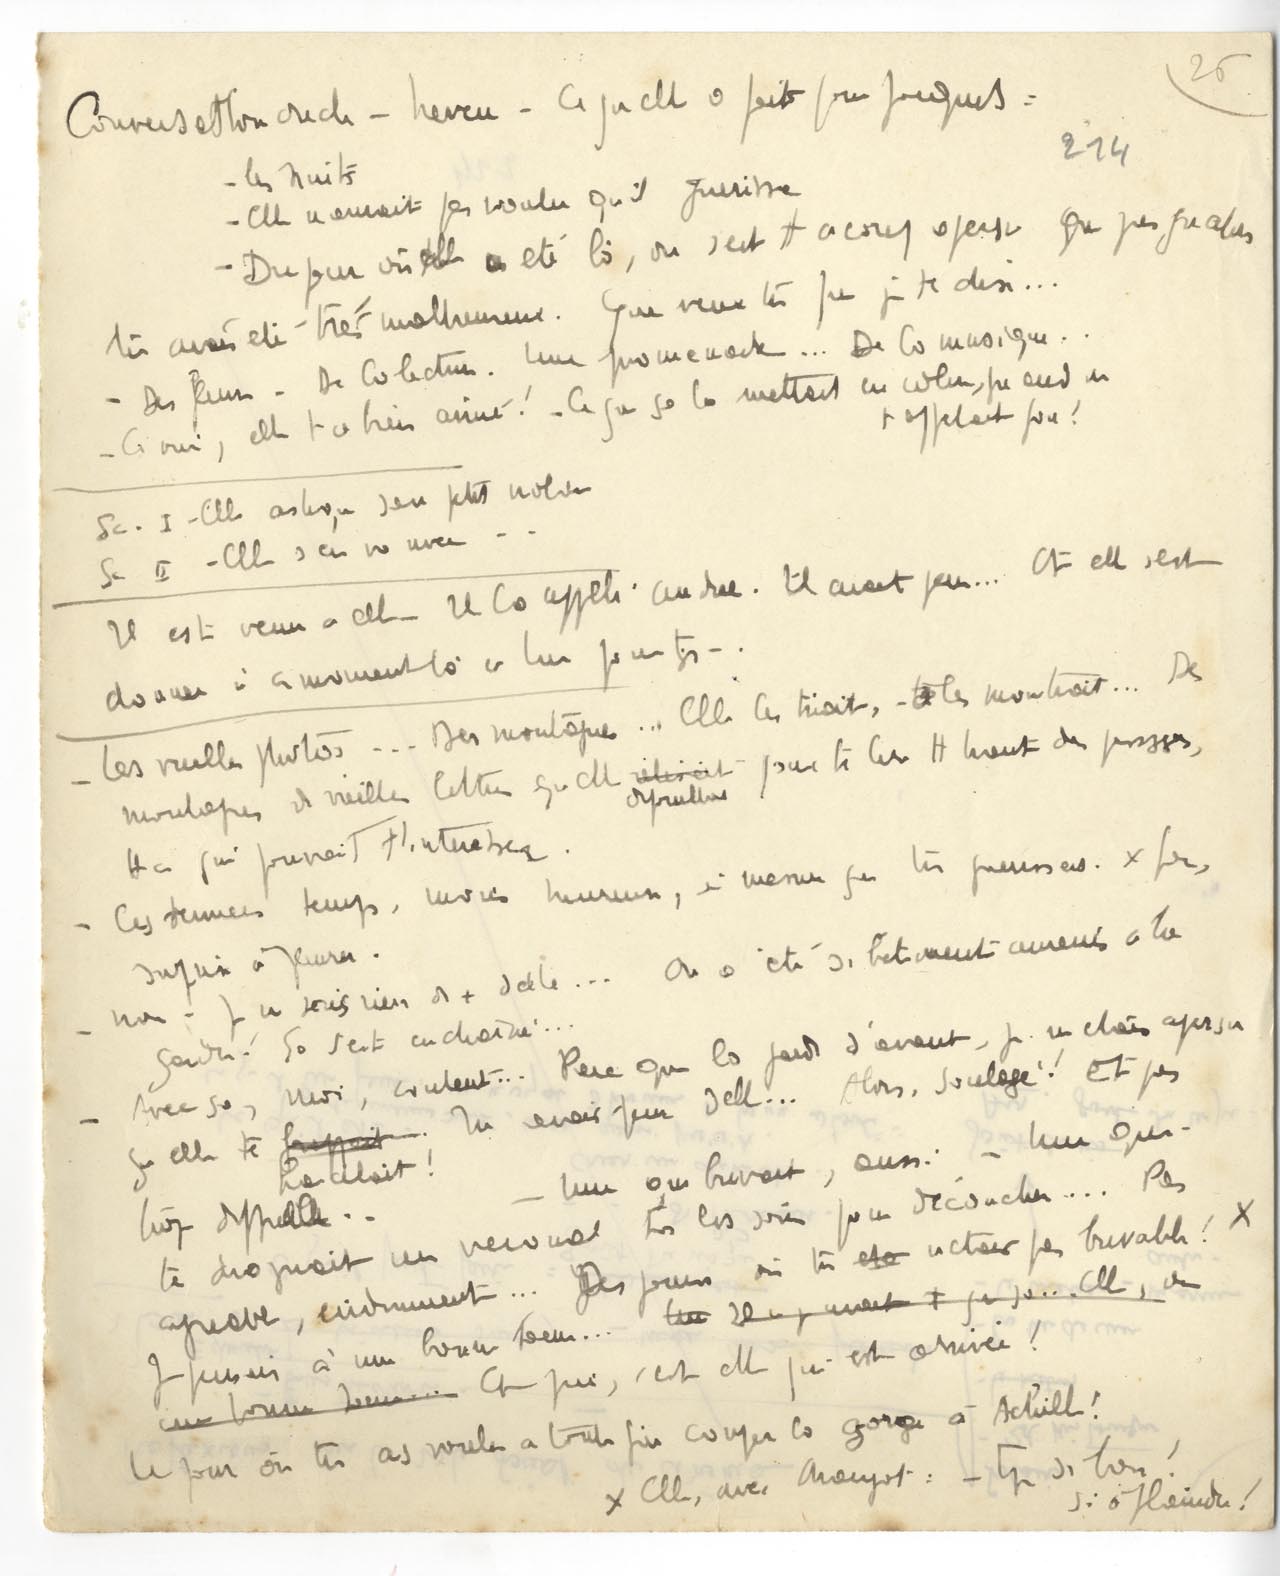 26
Conversation oncle - neveu - Ce qu'elle a fait pour Jacques =
214
- Les nuits
- Elle n'aurait pas voulu qu'il guerisse
- Du jour où elle a été là, on s'est aperçu que
tu avais été très malheureux. Que veux tu que je te dise...
- Des fleurs - De la lecture. Une promenade... De la musique..
- Ça oui, elle t'a bien aimé! - Ce que ça la mettait en colère, quand on
t'appelait fou!
Sc. I - Elle astique son petit
Sc II - Elle s'en va
Il est venu a elle - Il l'a appelée. Il avait peur... Et elle s'est
donnée à ce moment là a lui pour tjs - .
- Les vieilles photos --- Des montagnes ... Elle les triait, te les montrait... Des
montagnes de vieilles lettres qu'elle relisait pour te lire tt haut des passages,
tt ce qui pouvait t'intéresser.
- Ces derniers temps, moins heureuse, à mesure que tu guerissais. x
à pleurer.
- Non - Je ne sais rien de + d'elle... On a été si bêtement amenés a la
garder! Ça s'est enchaîné...
- Avec ça, moi, content... Parce que la garde d'avant, je m'étais aperçu
qu'elle te frappait. Tu avais peur d'elle... Alors, soulagé! Et pas
trop difficile.. - Une qui buvait, aussi. - Une qui
te droguait tous les soirs pour découcher.... Pas
agréable, évidemment... Des jours où tu n'étais pas buvable! x
Je pensais à une bonne soeur... Elle,
une bonne soeur... Et puis, c'est elle qui est arrivée!
Le jour où tu as voulu a toute fin couper la gorge à Achille!
x Elle, avec : - si bon!
si à plaindre!